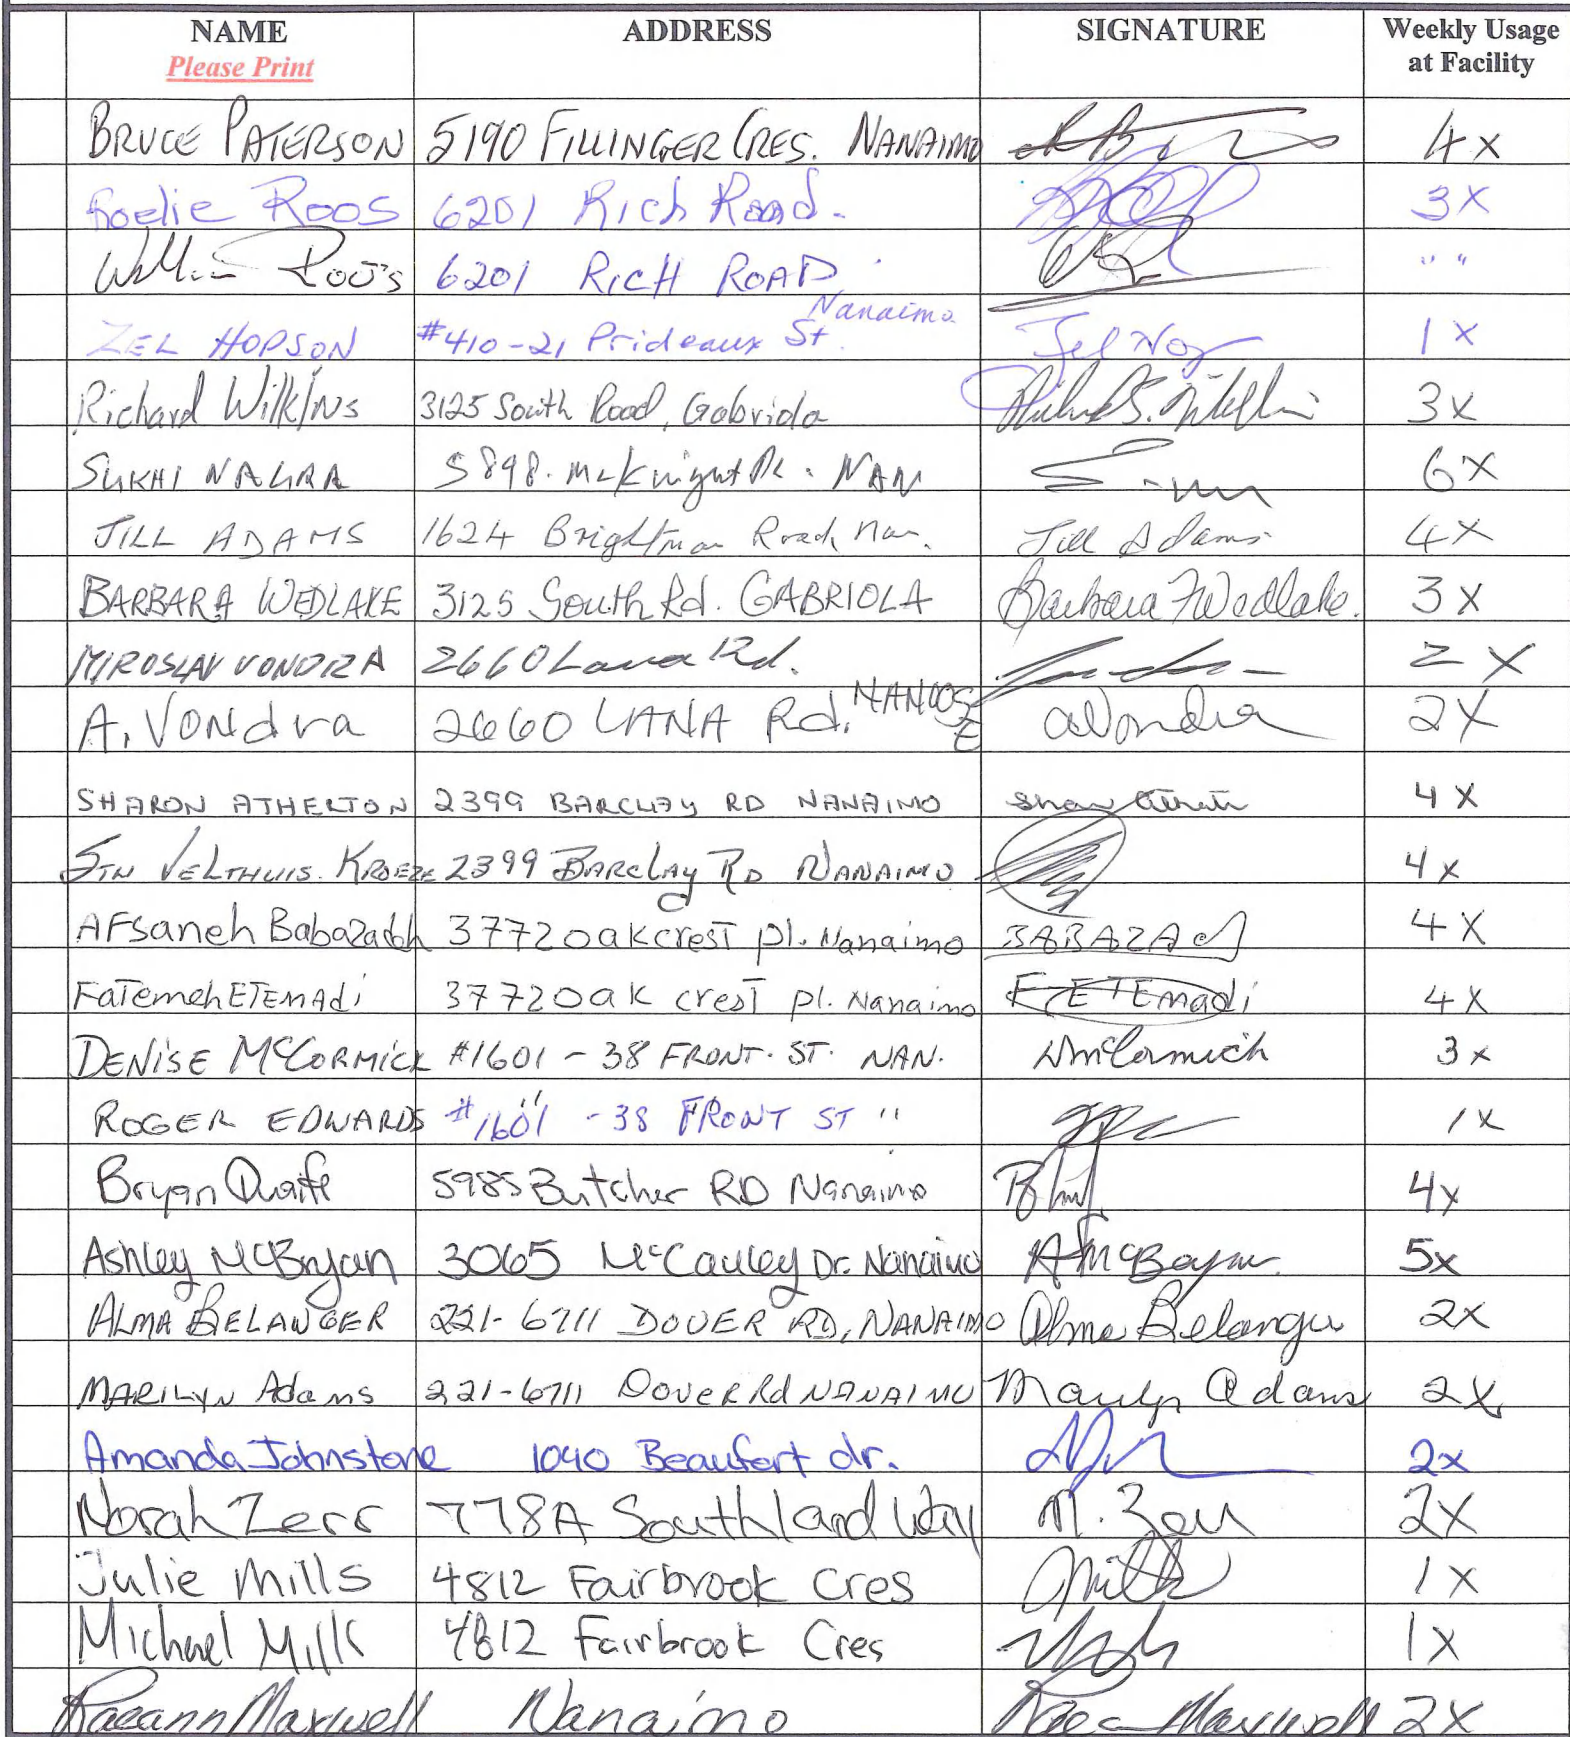 NAME ADDRESS SIGNATURE Weekly Usage
Please Print at Facility
BRUCE PATERSON 5190 FILLINGER CRES. NANAIMO 4X
Roelie Roos 6201 Rich Road. 3X
Roos 6201 RICH ROAD " "
ZEL HOPSON #410-21 Prideaux St. Nanaimo 1X
Richard Wilkins 3125 South Road, Gabriola 3X
SUKHI NAGRA 5898. McKnight Pl. NAN 6X
JILL ADAMS 1624 Brightman Road Nan. Jill Adams 4X
BARBARA WEDLAKE 3125 South Rd. GABRIOLA Barbara F Wedlake. 3X
MIROSLAV VONDRA 2660 Lana Rd. 2X
A. VONdra 2660 LANA Rd. NANOOSE AVondra 2X
SHARON ATHERTON 2399 BARCLAY RD NANAIMO 4X
VELTHUIS. KROEZE 2399 BARCLAY RD NANAIMO 4X
AFsaneh Babazadeh 3772 oakcrest pl. Nanaimo BABAZAD 4X
FaTemeh ETEMAdi 3772 oak crest pl. Nanaimo F. ETEmadi 4X
DENiSE McCORMiCK #1601 - 38 FRONT. ST. NAN. DMcCormick 3X
ROGER EDWARDS #1601 - 38 FRONT ST " 1X
Bryan Quaife 5985 Butcher RD Nanaimo 4X
Ashley McBryan 3065 McCauley Dr. Nanaimo AMcBryan 5X
ALMA BELANGER 221-6711 DOVER RD, NANAIMO Alma Belanger 2X
MARILYN Adams 221-6711 DOVER Rd NANAIMO Marilyn Adams 2X
Amanda Johnstone 1040 Beaufort dr. 2X
Norah Zerr 778A Southland Way N. Zerr 2X
Julie Mills 4812 Fairbrook Cres JMills 1X
Michael Mills 4812 Fairbrook Cres 1X
Raeann Maxwell Nanaimo Maxwell 2X